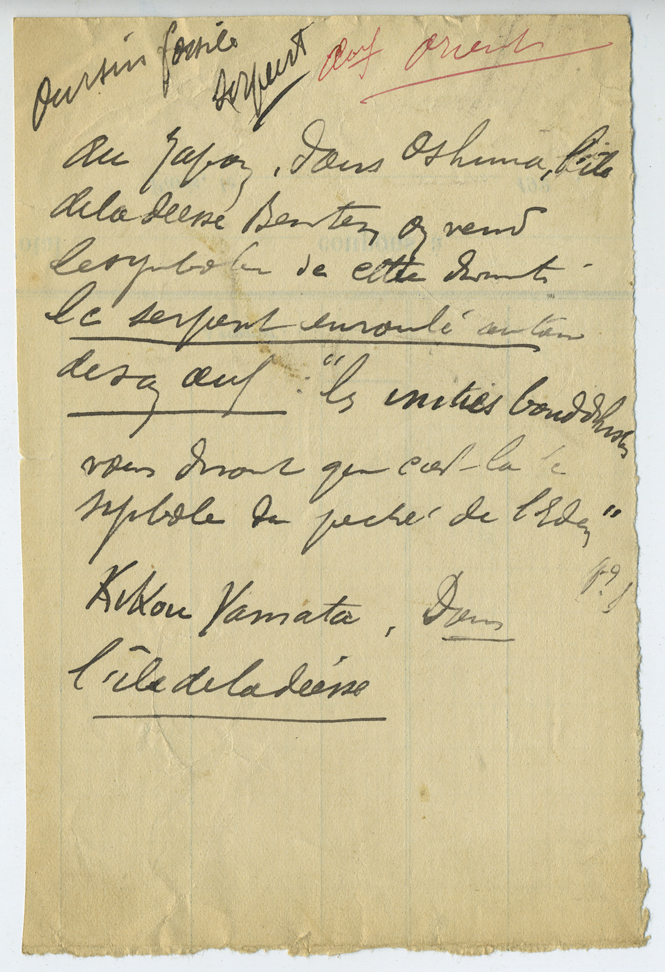 Oursin fossile
serpent
Œuf Orient
Au Japon, dans Oshima, l'île
de la déesse Benten, on vend
le symbole de cette divinité
le serpent enroulé autour
de son œuf : "les initiés bouddhistes
vous diront que c'est là le
symbole du péché de l'Eden"
Kikou Yamata, Dans
l'île de la déesse